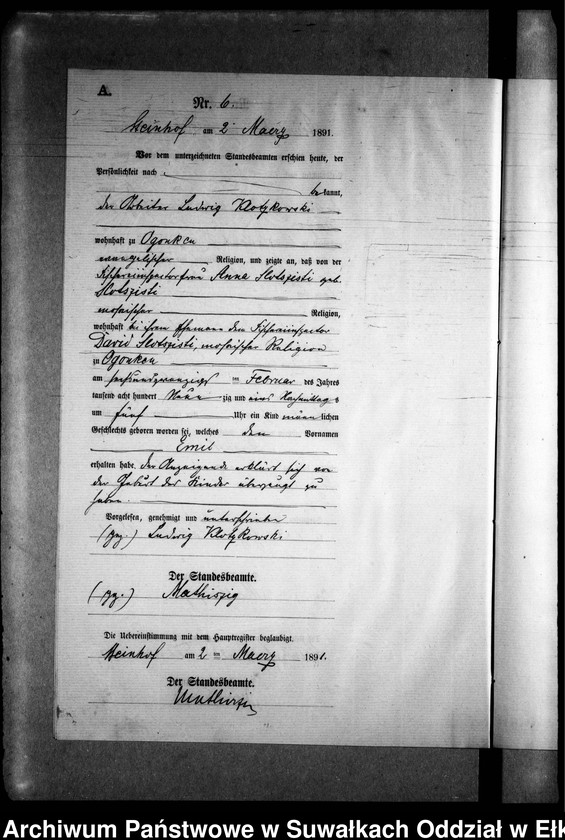 A.
Nr. 6.
Steinhof am 2 Maerz 1891.
Vor dem unterzeichneten Standesbeamten erschien heute, der
Persönlichkeit nach
bekannt,
der Arbeiter Ludwig Klotzkowski
wohnhaft zu Ogonken
evangelischer Religion, und zeigte an, daß von der
Fischereiinspectorfrau Anna Slotszisti geb.
Slotszisti
mosaischer Religion,
wohnhaft bei ihrem Ehemann dem Fischereiinspector
David Slotszisti, mosaischer Religion
zu Ogonken
am sechsundzwanzigs Februar des Jahres
tausend acht hundert Neun zig und eins Nachmittags
um fünf Uhr ein Kind männ lichen
Geschlechts geboren worden sei, welches den Vornamen
Emil
erhalten habe. Der Anzeigende erklärt sich von
der Geburt des Kindes überzeugt zu
haben.
Vorgelesen, genehmigt und unterschrieben
(gez.) Ludwig Klotzkowski
Der Standesbeamte.
(gez.) Mathiszig
Die Uebereinstimmung mit dem Hauptregister beglaubigt.
Steinhof am 2 Maerz 1891.
Der Standesbeamte.
Mathiszig
Archiwum Państwowe w Suwałkach Oddział w Ełk